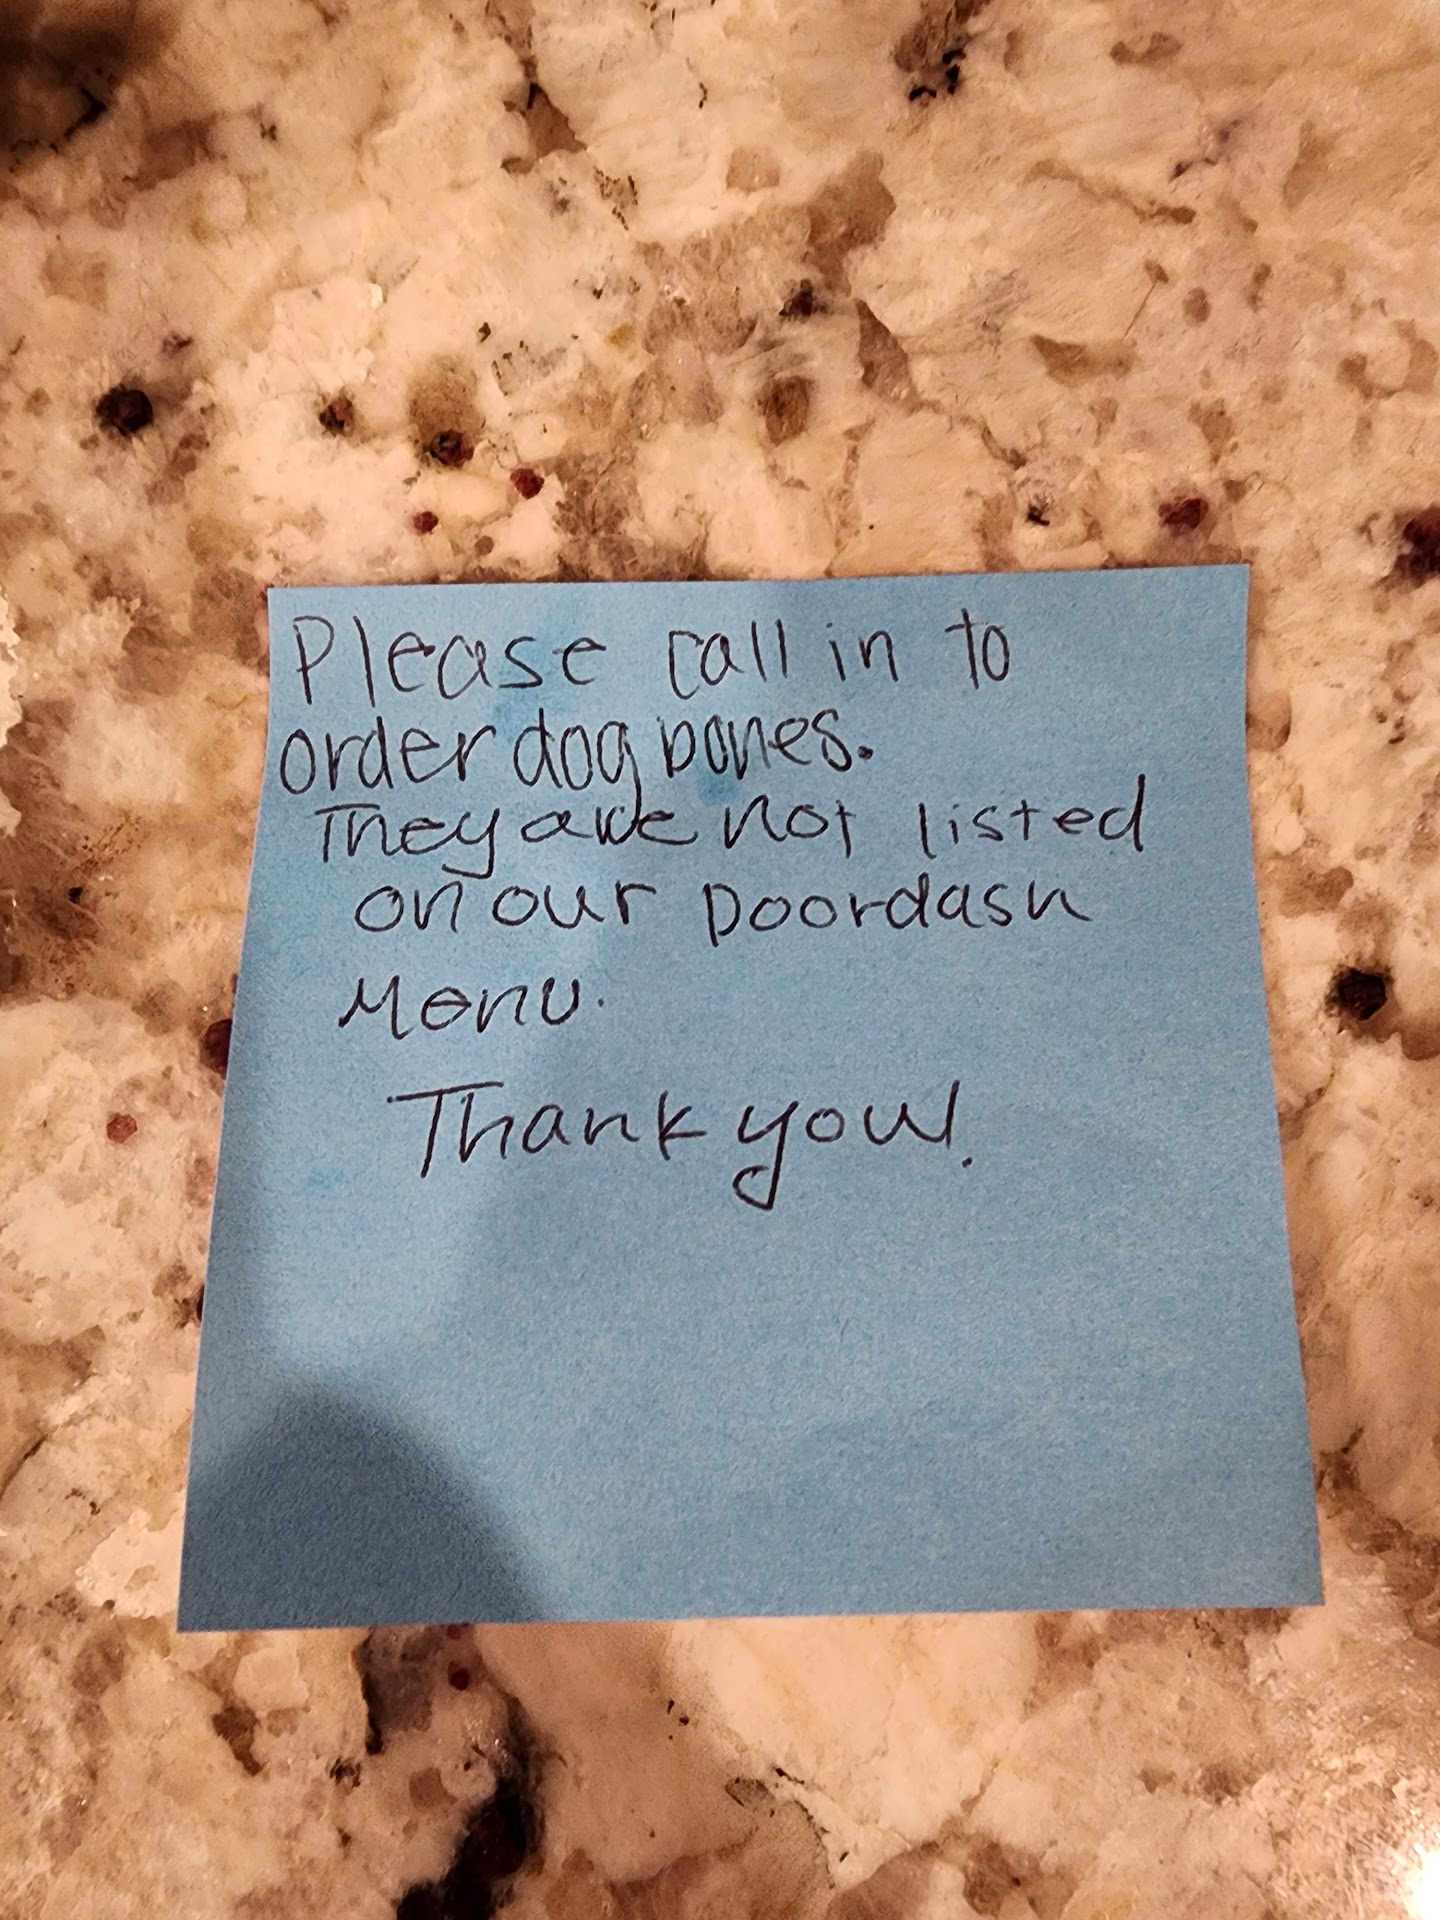 Please call in to
order dog bones.
They are not listed
on our Doordash
Menu.
Thank you!